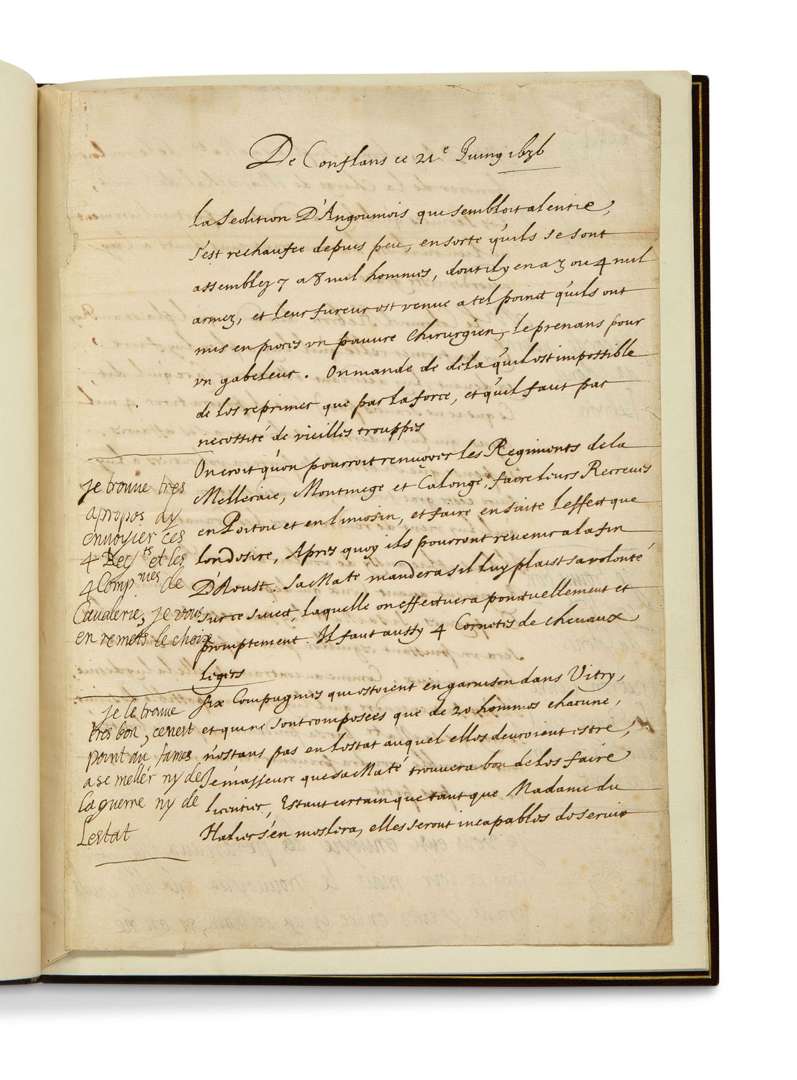 De Conflans ce 21e Juing 1636
la Sedition D'Angoumois que sembloit alentie,
s'est rechaufee depuis peu, en sorte qu'ils se sont
assemblez 7 a 8 mil hommes, dont il y en a 3 ou 4 mil
armez, et leur fureur est venue a tel point qu'ils ont
mis en pieces un pauvre Chirurgien, le prenans pour
un gabeleur. On mande de dela qu'il est impossible
de les reprimer que par la force, et qu'il faut par
necessité de vieilles trouppes
On croit qu'on pourroit renvoyer les Regiments de la
Melleraie, Montmege et Calonge, faire leurs Recreues
en Poitou et en limosin, et faire en suite l'effect que
lon desire, Apres quoy ils pourront revenir a la fin
D'Aoust. Sa Maté mandera s'il luy plaist sa volonté
sur ce suiect, laquelle on effectuera ponctuellement et
promptement. Il faut aussy 4 Cornetes de chevaux
legers
je trouve tres
apropos dy
envoyier ces
4 Regts et les
4 Compnies de
Cavalerie, je vous
en remets le choix
Six Compagnies qui estoient en garnison dans Vitry,
et qui ne sont composées que de 20 hommes chacune,
n'estans pas en l'estat auquel elles devroient estre,
Je m'asseure que sa Maté trouvera bon de les faire
licentier, Estant certain que tant que Madame du
Halier s'en meslera, elles seront incapables de servir
je le trouve
tres bon, ce nest
point au fames
a se meller ny de
la guerre ny de
Lestat